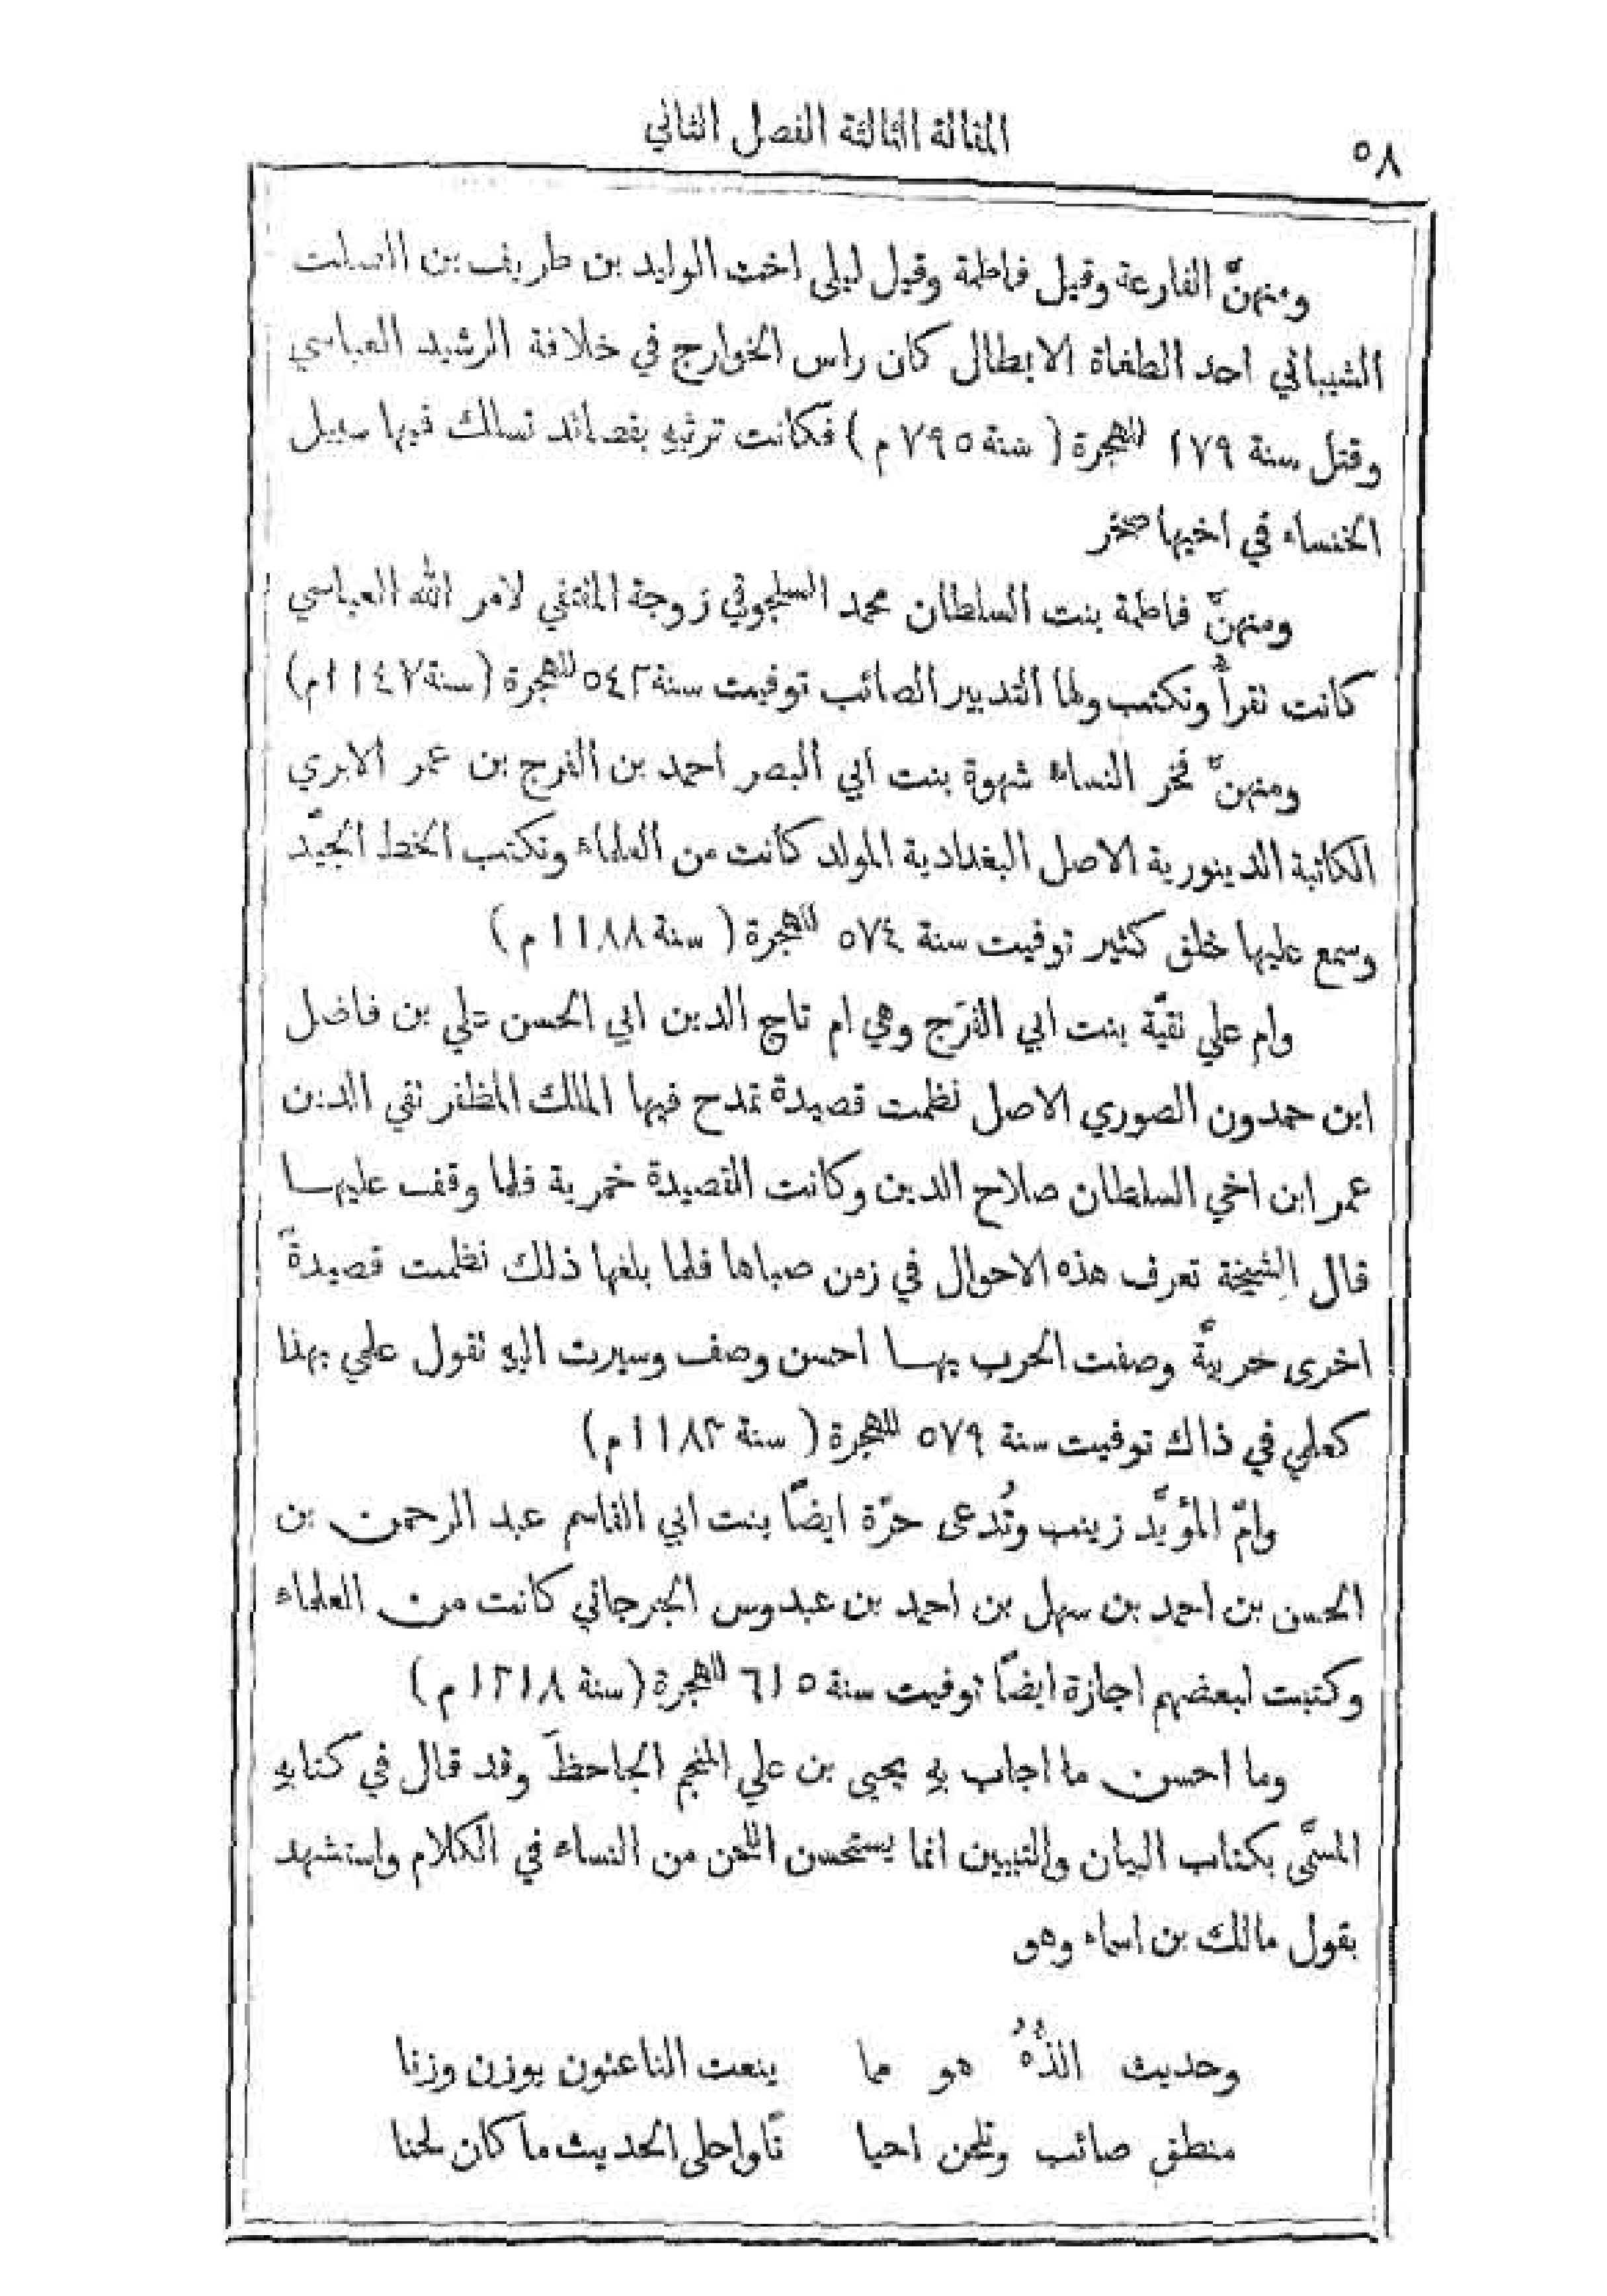 ٥٨
المقالة الثالثة الفصل الثاني
ومنهنَّ الفارعة وقيل فاطمة وقيل ليلى اخت الوليد بن طريف بن الصلت
الشيباني احد الطغاة الابطال كان راس الخوارج في خلافة الرشيد العباسي
وقتل سنة ١٧٩ للهجرة (سنة ٧٩٥ م) فكانت ترثيهِ بقصائد تسلك فيها سبيل
الخنساء في اخيها صخر
ومنهنَّ فاطمة بنت السلطان محمد السلجوقي زوجة المقتفي لامر الله العباسي
كانت تقرأُ وتكتب ولها التدبير الصائب توفيت سنة ٥٤٢ للهجرة (سنة ١١٤٧م)
ومنهنَّ فخر النساء شهوة بنت ابي البصر احمد بن الفرج بن عمر الابري
الكاتبة الدينورية الاصل البغدادية المولد كانت من العلماء وتكتب الخط الجيّد
وسمع عليها خلق كثير توفيت سنة ٥٧٤ للهجرة (سنة ١١٨٨ م)
وام علي تقيّة بنت ابي الفرَج وهي ام تاج الدين ابي الحسن علي بن فاضل
ابن حمدون الصوري الاصل نظمت قصيدة تمدح فيها الملك المظفر تقي الدين
عمر ابن اخي السلطان صلاح الدين وكانت القصيدة خمرية فلما وقف عليها
قال الشيخة تعرف هذه الاحوال في زمن صباها فلما بلغها ذلك نظمت قصيدةً
اخرى حربيَّة وصفت الحرب بها احسن وصف وسيرت اليهِ تقول علمي بهذا
كعلمي في ذاك توفيت سنة ٥٧٩ للهجرة (سنة ١١٨٣م)
وامّ المؤيَّد زينب وتُدعى حرّة ايضًا بنت ابي القاسم عبد الرحمن بن
الحسن بن احمد بن سهل بن احمد بن عبدوس الجرجاني كانت من العلماء
وكتبت لبعضهم اجازة ايضًا توفيت سنة ٦١٥ للهجرة (سنة ١٢١٨ م)
وما احسن ما اجاب بهِ يحيى بن علي المنجم الجاحظَ وقد قال في كتابهِ
المسمَّى بكتاب البيان والتبيين انما يستحسن اللحن من النساء في الكلام واستشهد
بقول مالك بن اسماء وهو
وحديث الذُّهُ هو مما ينعت الناعتون يوزن وزنا
منطق صائب وتلحن احيا نًا واحلى الحديث ما كان لحنا